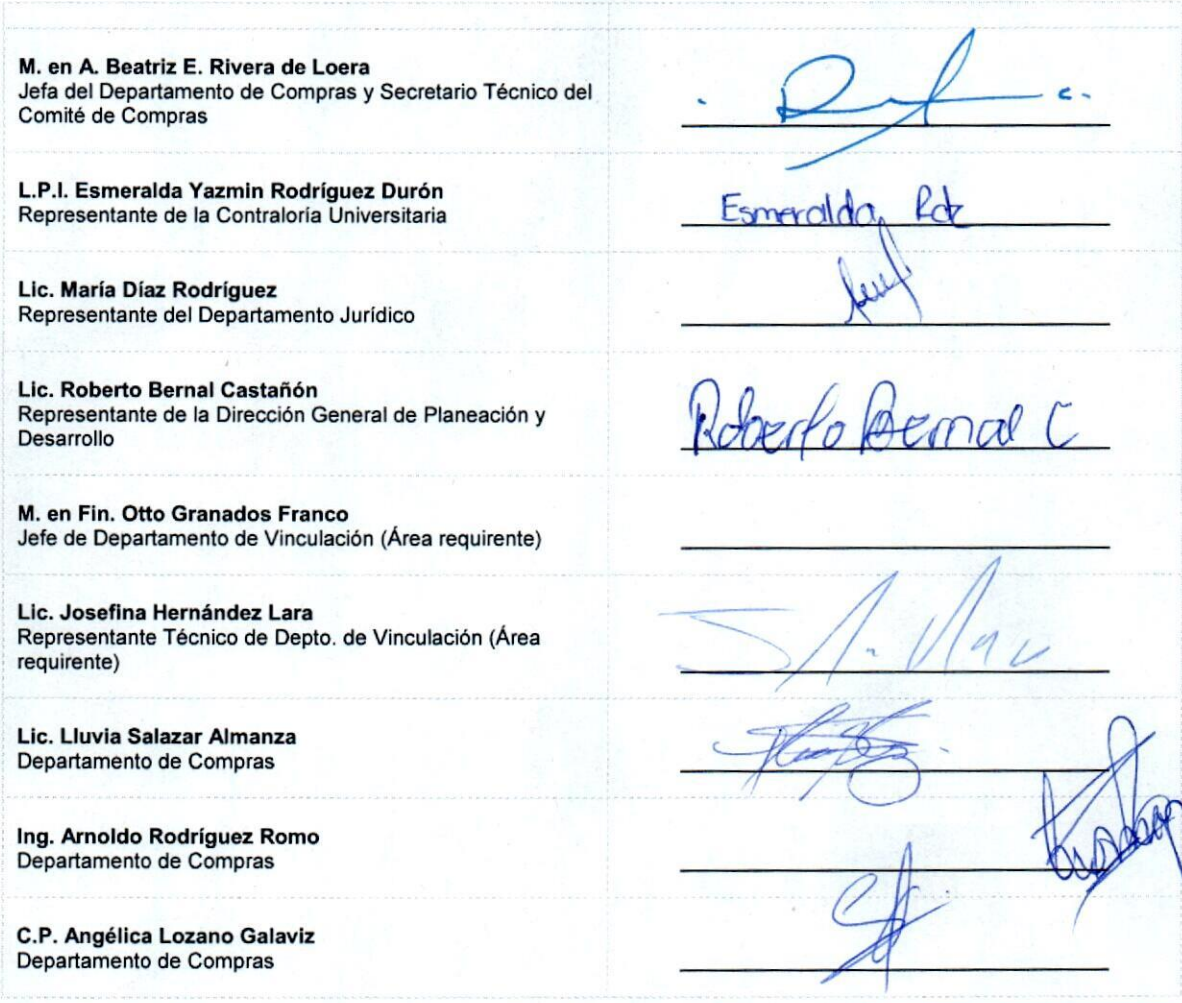 M. en A. Beatriz E. Rivera de Loera
Jefa del Departamento de Compras y Secretario Técnico del
Comité de Compras
L.P.I. Esmeralda Yazmin Rodríguez Durón
Representante de la Contraloría Universitaria
Esmeralda Rdz
Lic. María Díaz Rodríguez
Representante del Departamento Jurídico
Lic. Roberto Bernal Castañón
Representante de la Dirección General de Planeación y
Desarrollo
Roberto Bernal C
M. en Fin. Otto Granados Franco
Jefe de Departamento de Vinculación (Área requirente)
Lic. Josefina Hernández Lara
Representante Técnico de Depto. de Vinculación (Área
requirente)
Lic. Lluvia Salazar Almanza
Departamento de Compras
Ing. Arnoldo Rodríguez Romo
Departamento de Compras
C.P. Angélica Lozano Galaviz
Departamento de Compras